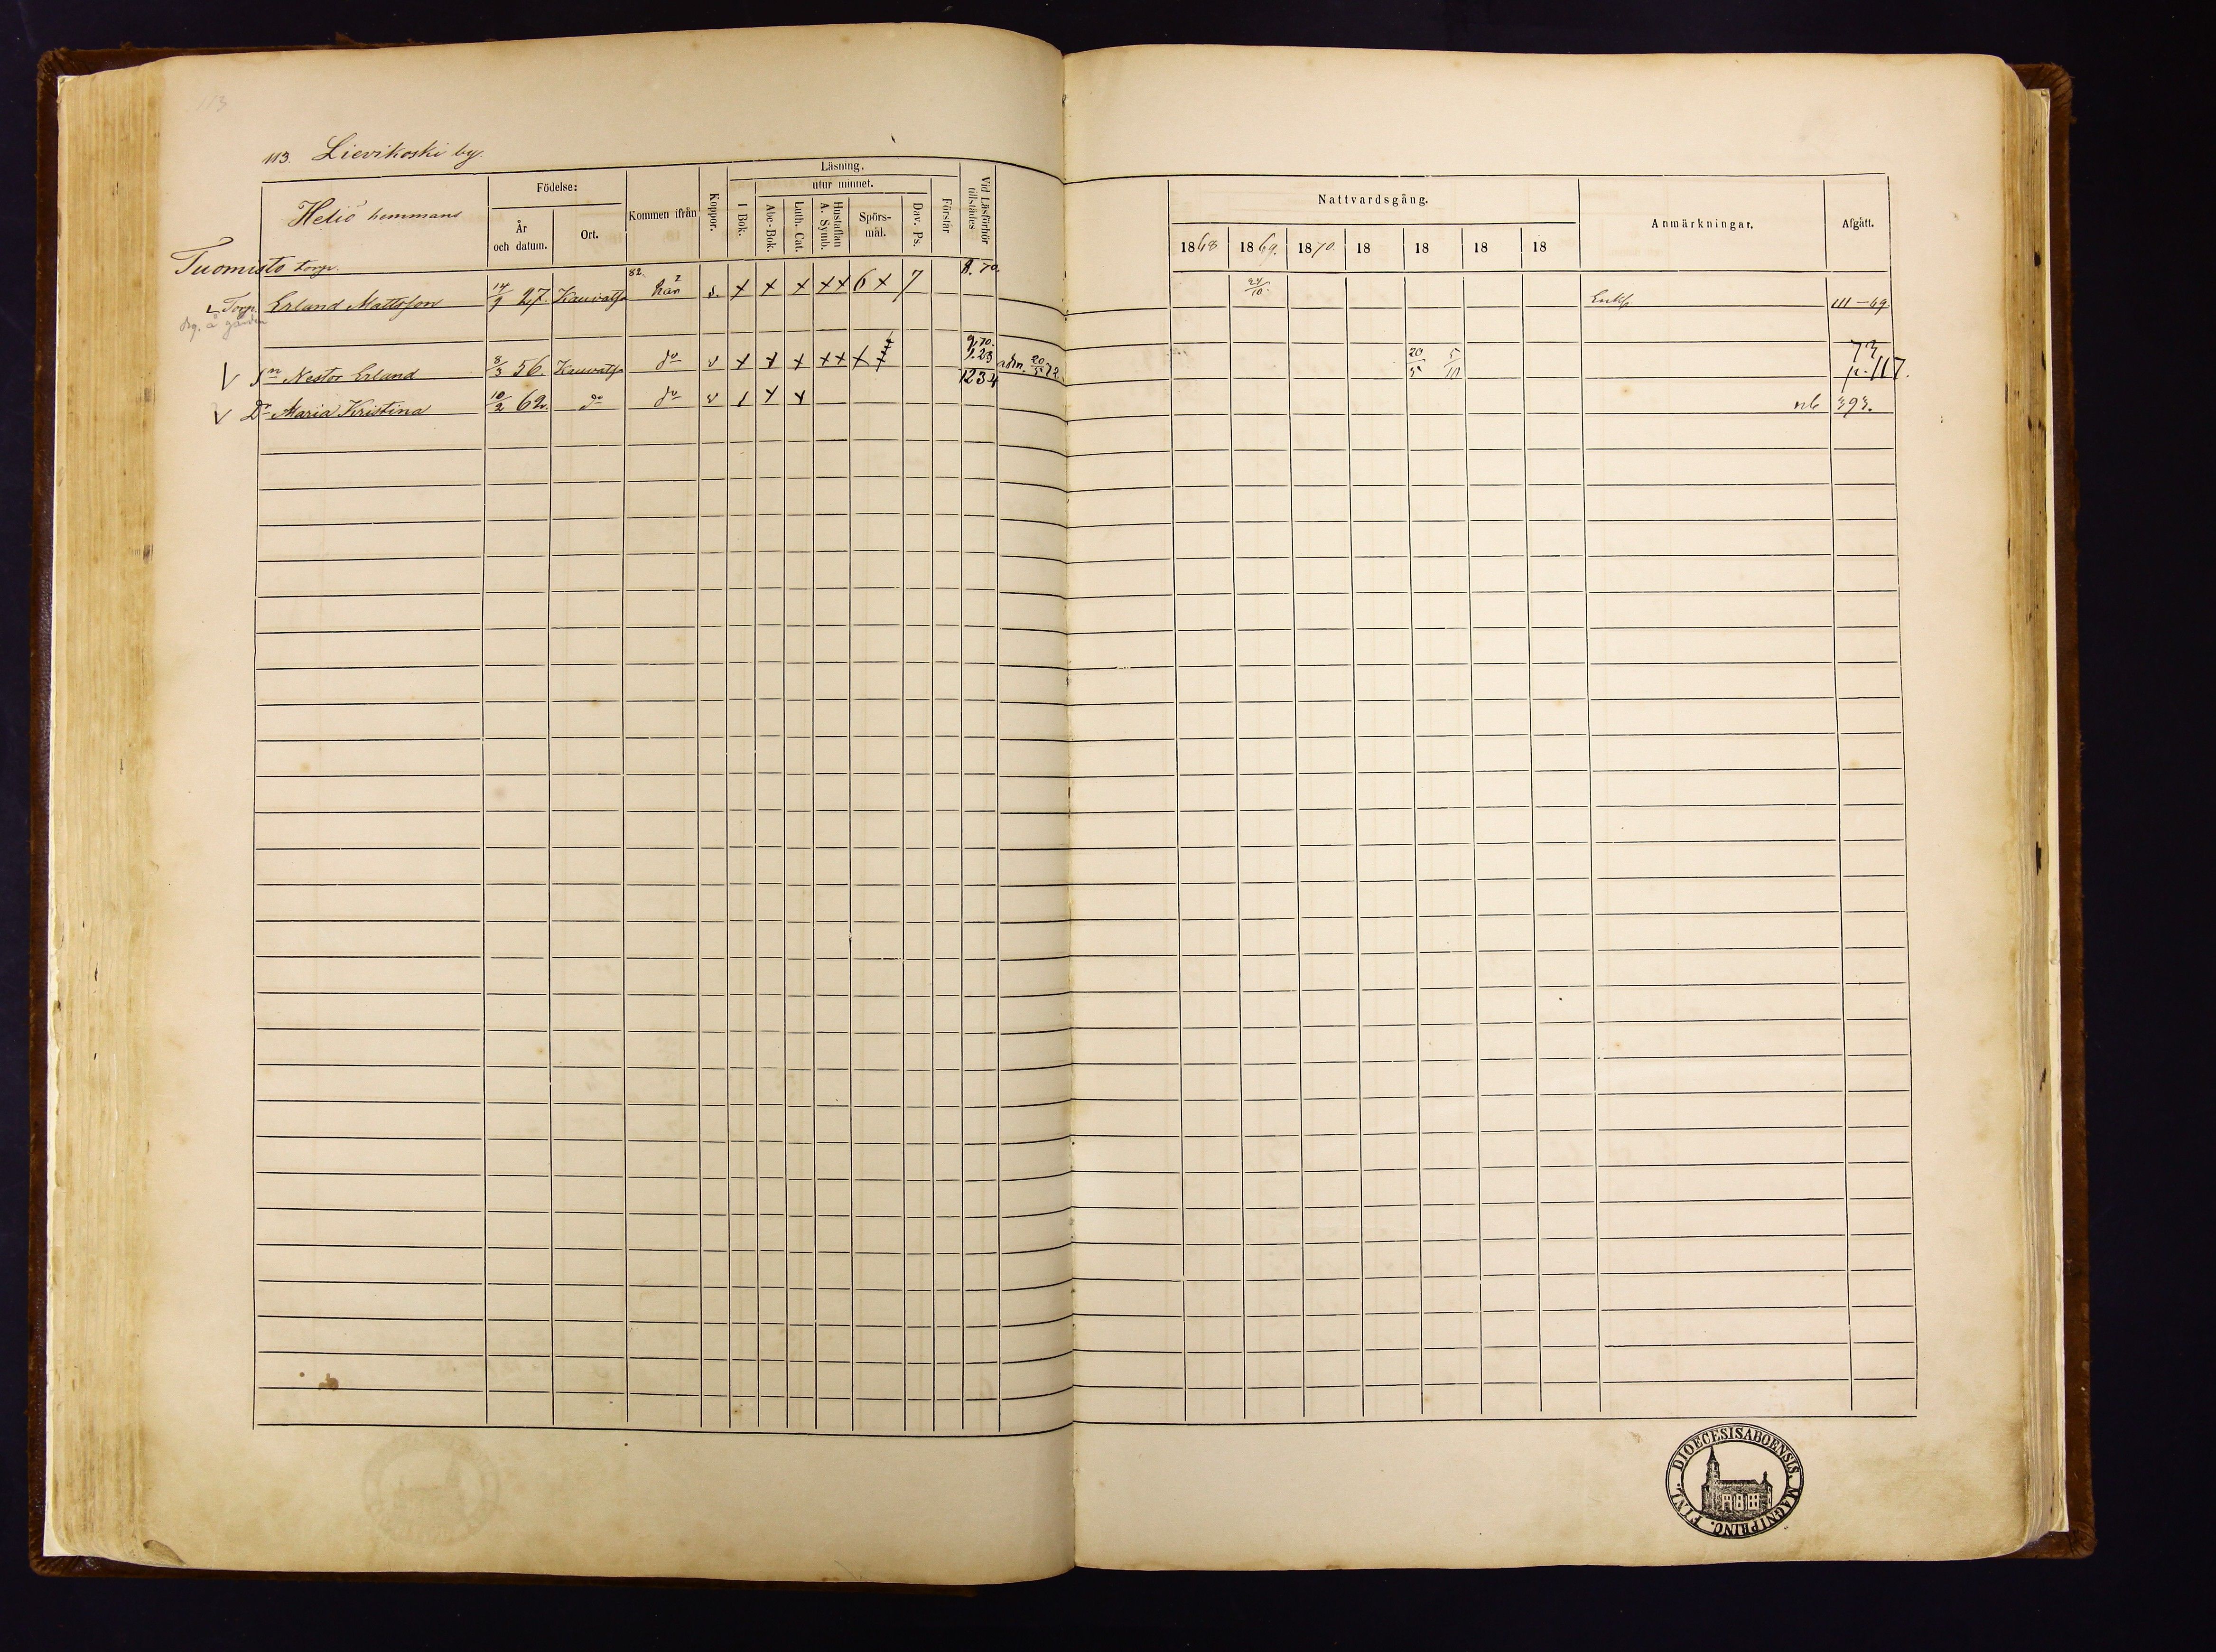 113
113. Lievikoski by.
Heliö hemmans
Födelse:
År och datum.
Ort.
Kommen ifrån
Koppor.
Läsning.
utur minnet.
I Bok.
Abc-Bok.
Luth. Cat.
Hustaflan A. Symb.
Spörs-mål.
Dav. Ps.
Förstår
Vid Läsförhör tillstädes
Nattvardsgång.
1868 1869. 1870. 18 18 18 18
Anmärkningar.
Afgått.
Tuomisto torp.
Torp. Erland Mattsson 14/9 27. Kauvatsa 82. v. + + + ++ 6 + 7 8. 70. 24/10. Enkl. III–69.
å gården
V Sn Nestor Erland 8/3 56. Kauvatsa do v + + + ++ 9.70. 1.23 adm. 20/5 72. 20/5 5/10 73 p. 117.
V Dr Maria Kristina 10/2 62. do do v 1234 nb 393.
DIOECESIS ABOENSIS. MAGNI PRINC. FINL.